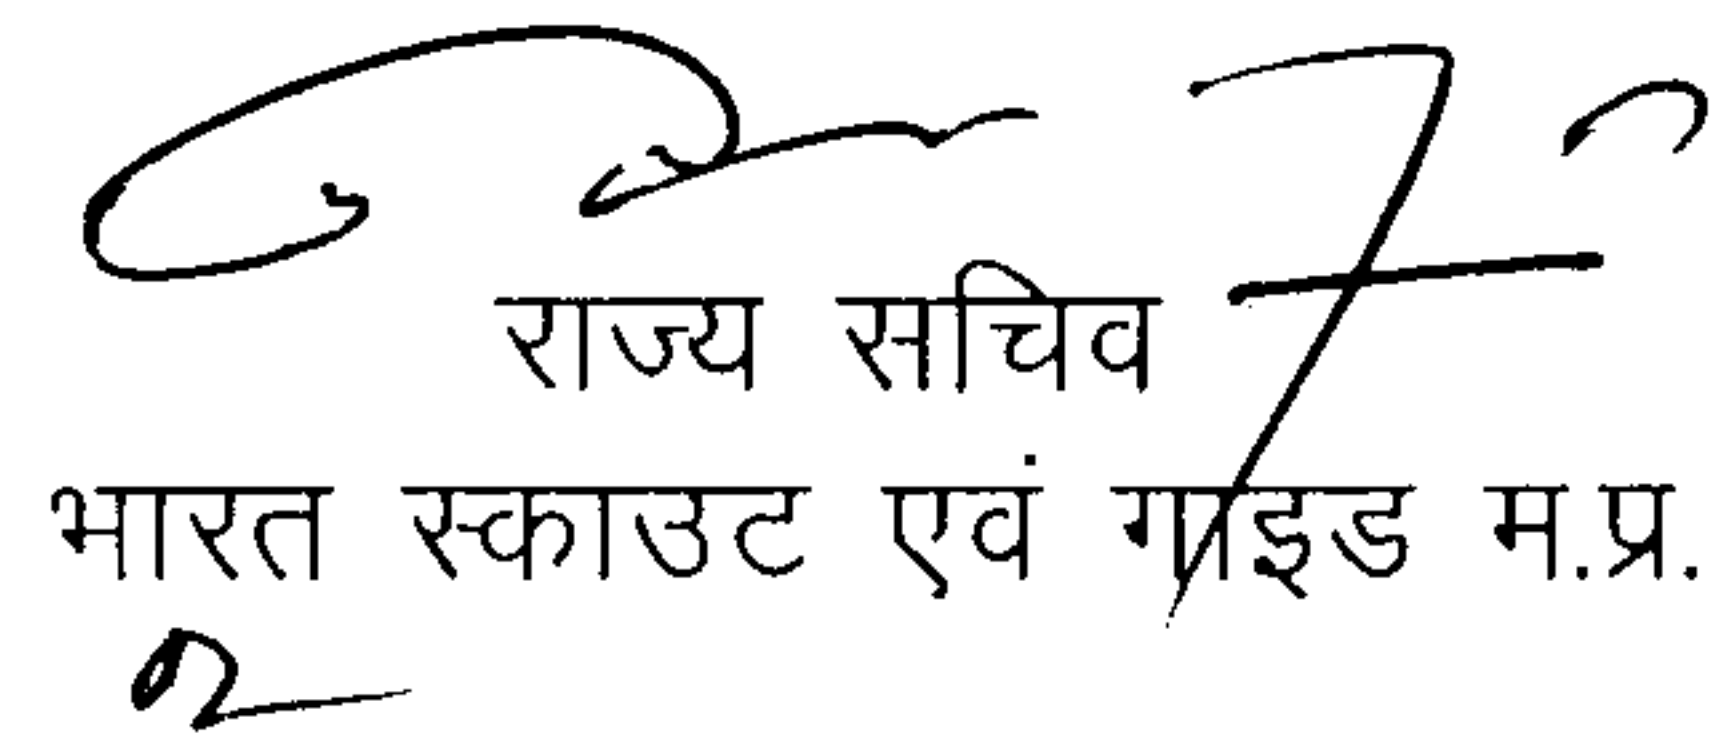 राज्य सचिव
भारत स्काउट एवं गाइड म.प्र.